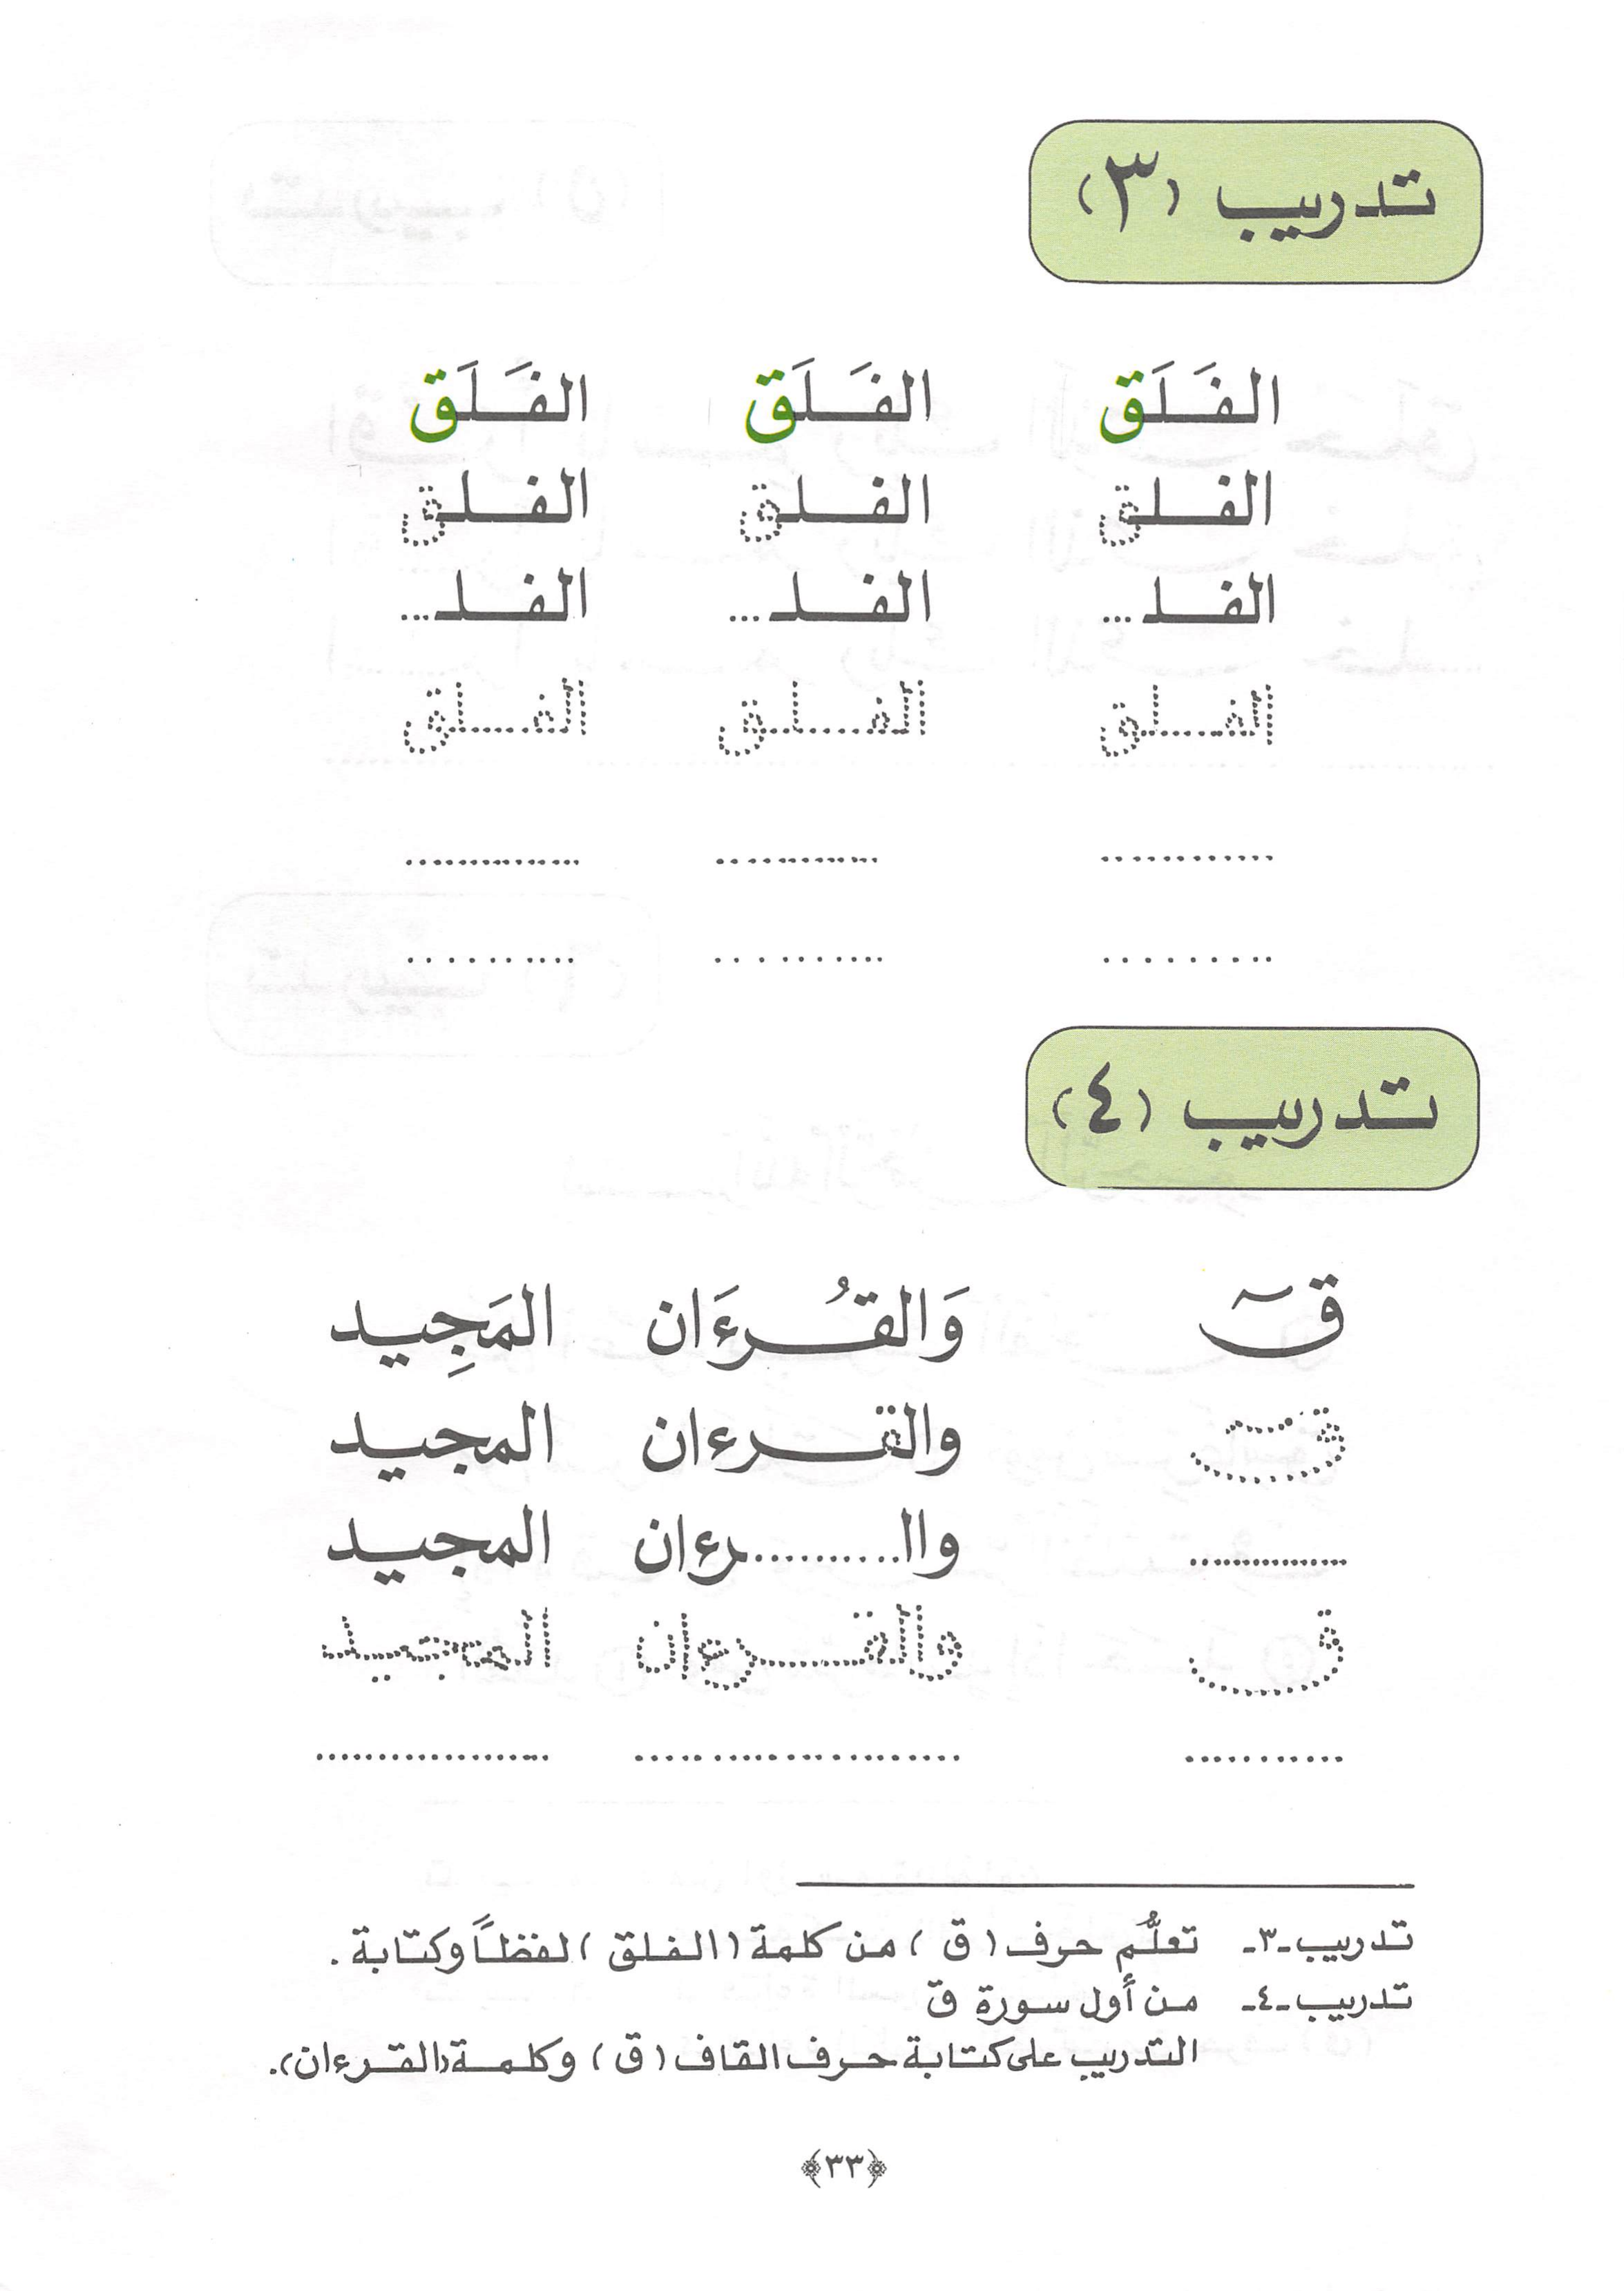 تدريب (٣)
الفَلَق الفَلَق الفَلَق
الفلق الفلق الفلق
الفلـ... الفلـ... الفلـ...
الفلق الفلق الفلق
............ ............ ..............
......... .......... ..........
تدريب (٤)
قۤ وَالقُرءَان المَجِيد
قۤ والقرءان المجيد
............... والـ..........رءان المجيد
ق والقرءان المجيد
........... ...................... ...................
تدريب-٣- تعلُّم حرف (ق) من كلمة (الفلق) لفظاً وكتابة.
تدريب-٤- من أول سورة ق
التدريب على كتابة حرف القاف (ق) وكلمة (القرءان).
﴿٣٣﴾